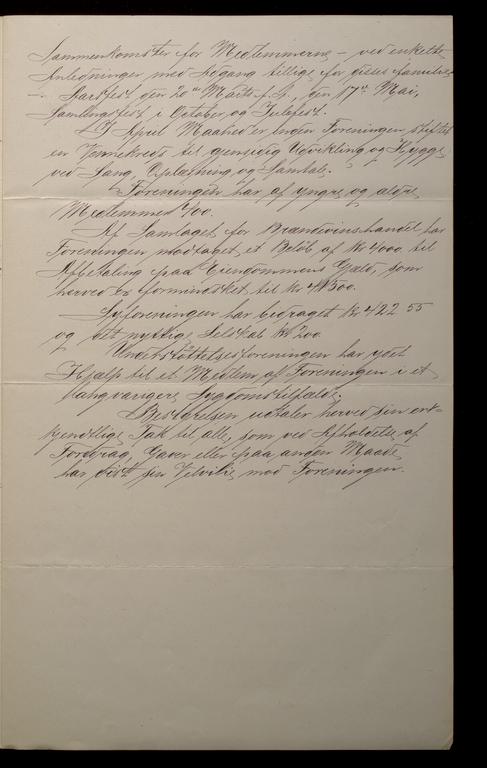 Sammenkomster for Medlemmerne – ved enkelte
Anledninger med Adgang tillige for disses Familie
–. Aarsfest den 20de Marts d. A., den 17de Mai,
Samlingsfest i October og Julefest.
I April Maaned er inden Foreningen stiftet
en Vennekreds til gjensidig Udvikling og Hygge
ved Sang, Oplæsning og Samtale.
Foreningen har af yngre og ældre
Medlemmer 400.
Af Samlaget for Brændevinshandel har
Foreningen modtaget et Beløb af Kr 4000 til
Afbetaling paa Eiendommens Gjæld, som
herved er formindsket til Kr 41300.
Syforeningen har bidraget Kr 422 55
og det nyttige Selskab Kr 200.
Understøttelsesforeningen har ydet
Hjælp til et Medlem af Foreningen i et
langvarigere Sygdomstilfælde.
Bestyrelsen udtaler herved sin erk-
jendtlige Tak til alle, som ved Afholdelse af
Foredrag, Gaver eller paa anden Maade
har vist sin Velvilie mod Foreningen.